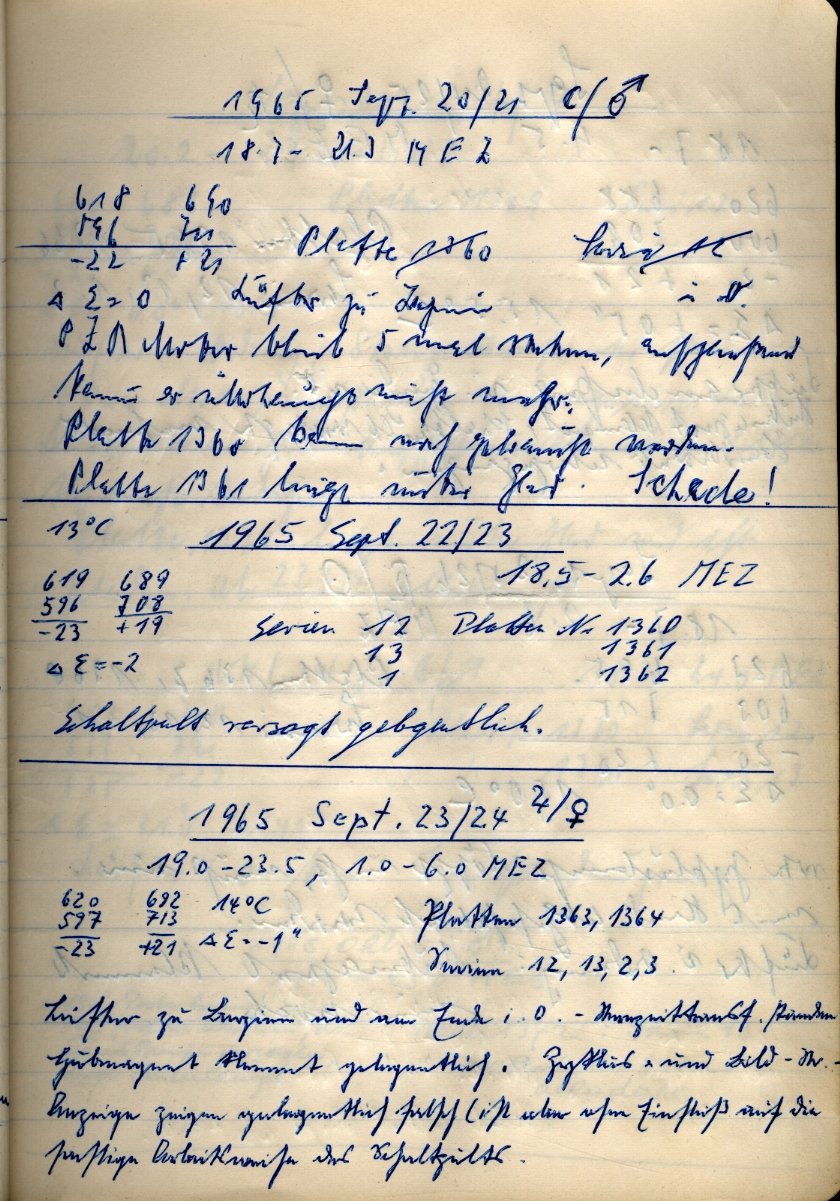 1965 Sept. 20/21 ☾/♂
18.7 - 21.3 MEZ
618 690
596 711
-22 +21 Platte 1360
Δ Σ = 0 Lüfter zu Beginn i. O.
PZR Motor blieb 5 mal stehen, anschließend
kam er überhaupt nicht mehr.
Platte 1360 kann noch gebraucht werden.
Platte 1361 liegt unter Glas. Schade!
13°C 1965 Sept. 22/23
18.5 - 2.6 MEZ
619 689
596 708
-23 +19 Serien 12 Platten Nr 1360
13 1361
Δ Σ = -2 1 1362
Schaltpult versagt gelegentlich.
1965 Sept. 23/24 ♃/♀
19.0 - 23.5, 1.0 - 6.0 MEZ
620 692 14°C
597 713 Platten 1363, 1364
-23 +21 Δ Σ = -1"
Serien 12, 13, 2, 3.
Lüfter zu Beginn und am Ende i. O. -
Hubmagnet klemmt gelegentlich. Zyklus- und Bild-Nr.-
Anzeige zeigen gelegentlich falsch (ist aber ohne Einfluß auf die
sonstige Arbeitsweise des Schaltpults.